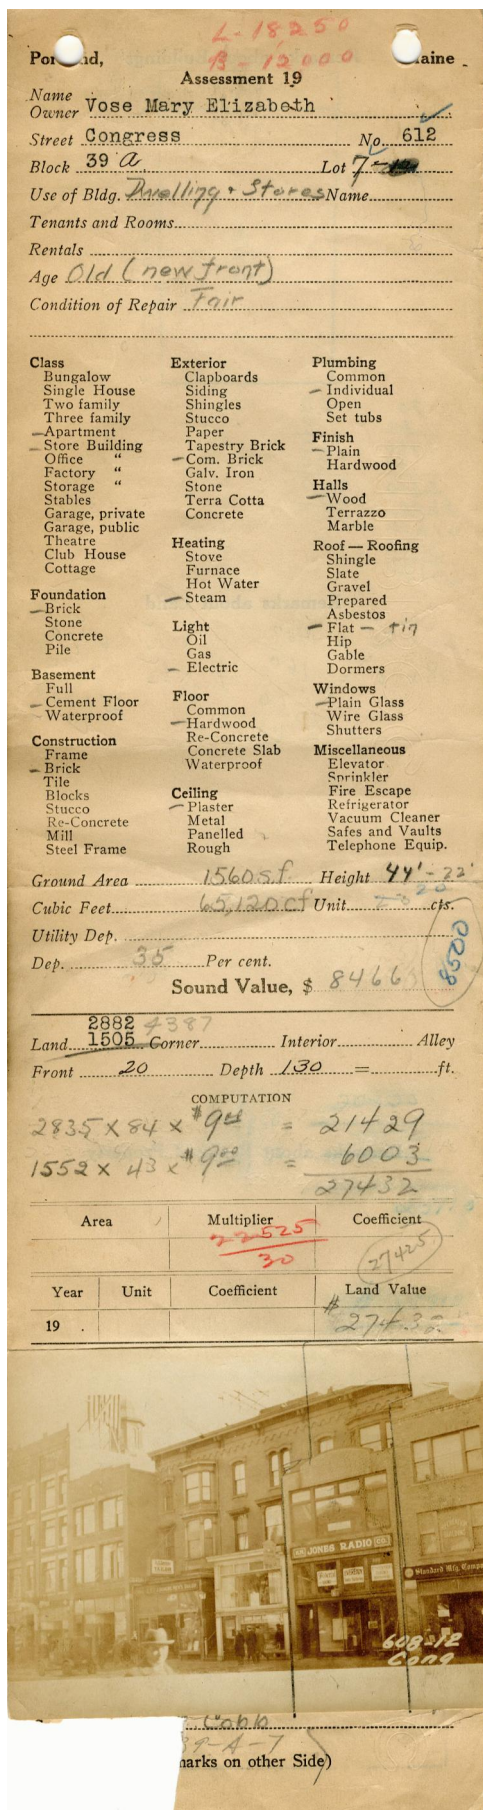 L-18250
B-12000
Po nd, aine
Assessment 19
Name
Owner Vose Mary Elizabeth
Street Congress No. 612
Block 39 a Lot 7
Use of Bldg. Dwelling + Stores Name
Tenants and Rooms
Rentals
Age Old (new front)
Condition of Repair Fair
Class
Bungalow
Single House
Two family
Three family
Apartment
Store Building
Office "
Factory "
Storage "
Stables
Garage, private
Garage, public
Theatre
Club House
Cottage
Foundation
Brick
Stone
Concrete
Pile
Basement
Full
Cement Floor
Waterproof
Construction
Frame
Brick
Tile
Blocks
Stucco
Re-Concrete
Mill
Steel Frame
Exterior
Clapboards
Siding
Shingles
Stucco
Paper
Tapestry Brick
Com. Brick
Galv. Iron
Stone
Terra Cotta
Concrete
Heating
Stove
Furnace
Hot Water
Steam
Light
Oil
Gas
Electric
Floor
Common
Hardwood
Re-Concrete
Concrete Slab
Waterproof
Ceiling
Plaster
Metal
Panelled
Rough
Plumbing
Common
Individual
Open
Set tubs
Finish
Plain
Hardwood
Halls
Wood
Terrazzo
Marble
Roof — Roofing
Shingle
Slate
Gravel
Prepared
Asbestos
Flat — tin
Hip
Gable
Dormers
Windows
Plain Glass
Wire Glass
Shutters
Miscellaneous
Elevator
Sprinkler
Fire Escape
Refrigerator
Vacuum Cleaner
Safes and Vaults
Telephone Equip.
Ground Area 1560 sf Height 44'-22'
Cubic Feet 65,120 cf Unit 20 cts.
Utility Dep.
Dep. 35 Per cent.
8500
Sound Value, $ 8466
2882 4387
Land 1505 Corner Interior Alley
Front 20 Depth 130 = ft.
COMPUTATION
2835 x 84 x $9.00 = 21429
1552 x 43 x $9.00 = 6003
27432
Area Multiplier Coefficient
22525
30
27425
Year Unit Coefficient Land Value
19 $ 27432
JONES RADIO CO.
Standard Mfg. Comp
608-12
Cong
Cobb
39-A-7
marks on other Side)